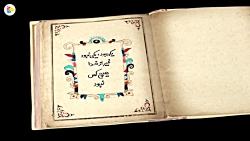 یکی بود یکی نبود
غیر از خدا
هیچ کس
نبود